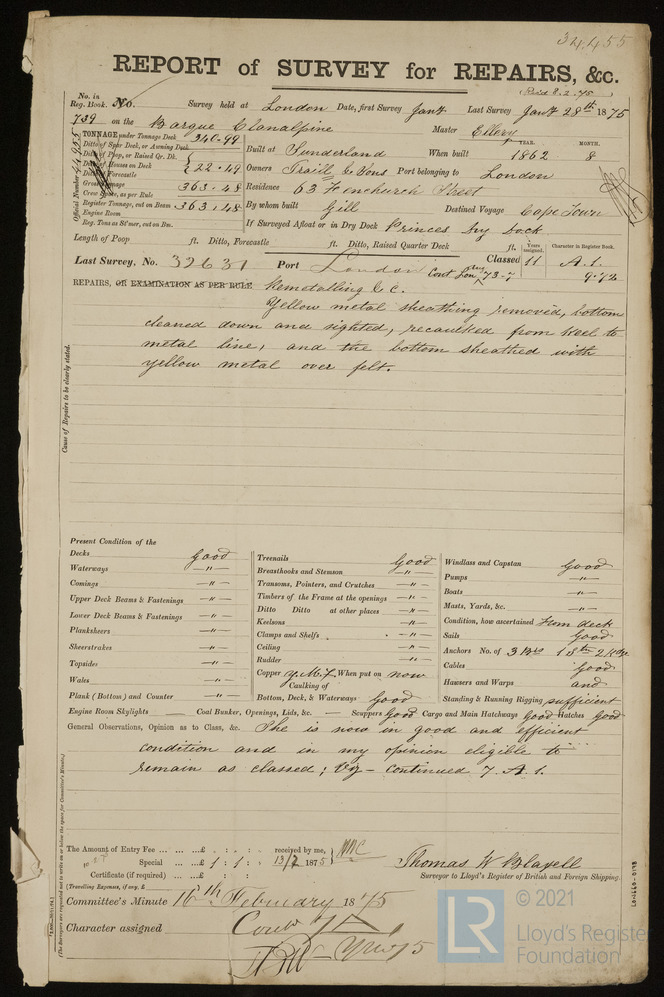 34,455
REPORT of SURVEY for REPAIRS, &c.
No. in Reg. Book. No. Survey held at London Date, first Survey Jany Last Survey Jany 28th 1875
739 on the Barque Clanalpine Master
TONNAGE under Tonnage Deck 340.99
Ditto of Spar Deck, or Awning Deck
Ditto of Poop, or Raised Qr. Dk.
Ditto of Houses on Deck 22.49
Ditto of Forecastle
Gross Tonnage 363.48
Crew Space, as per Rule
Register Tonnage, cut on Beam 363.48
Engine Room
Reg. Tons as St'mer, cut on Bm.
Official Number 44955
Built at Sunderland When built YEAR. 1862 MONTH. 8
Owners Traill & Sons Port belonging to London
Residence 63 Fenchurch Street
By whom built Gill Destined Voyage Cape Town
If Surveyed Afloat or in Dry Dock Princes Dry Dock
Length of Poop ft. Ditto, Forecastle ft. Ditto, Raised Quarter Deck ft.
Years assigned. Character in Register Book.
Last Survey, No. 32631 Port London Cont Lon 73-7 Classed 11 A.1.
9.72
REPAIRS, OR EXAMINATION AS PER RULE Remetalling &c.
Yellow metal sheathing removed, bottom
cleaned down and sighted, recaulked from keel to
metal line, and the bottom sheathed with
yellow metal over felt.
Cause of Repairs to be clearly stated.
Present Condition of the
Decks good
Waterways —"—
Comings —"—
Upper Deck Beams & Fastenings —"—
Lower Deck Beams & Fastenings —"—
Planksheers —"—
Sheerstrakes —"—
Topsides —"—
Wales —"—
Plank (Bottom) and Counter —"—
Treenails Good
Breasthooks and Stemson —"—
Transoms, Pointers, and Crutches —"—
Timbers of the Frame at the openings —"—
Ditto Ditto at other places —"—
Keelsons —"—
Clamps and Shelfs —"—
Ceiling —"—
Rudder —"—
Copper Y.M.f, When put on now
Caulking of
Bottom, Deck, & Waterways Good
Windlass and Capstan Good
Pumps —"—
Boats —"—
Masts, Yards, &c. —"—
Condition, how ascertained From deck
Sails Good
Anchors No. of 3 Brs 1 Sth 2 Kdge
Cables Good
Hawsers and Warps and
Standing & Running Rigging sufficient
Engine Room Skylights — Coal Bunker, Openings, Lids, &c. — Scuppers Good Cargo and Main Hatchways Good Hatches Good
General Observations, Opinion as to Class, &c. She is now in good and efficient
condition and in my opinion eligible to
remain as classed; Viz - continued 7 A 1.
The Amount of Entry Fee £ : : received by me,
Special £ 1 : 1 : 13/2 1875
Certificate (if required) £ : :
(Travelling Expenses, if any, £
Thomas W Blaxell
Surveyor to Lloyd's Register of British and Foreign Shipping.
Committee's Minute 16th February 1875
Character assigned
© 2021
LR
Lloyd's Register
Foundation